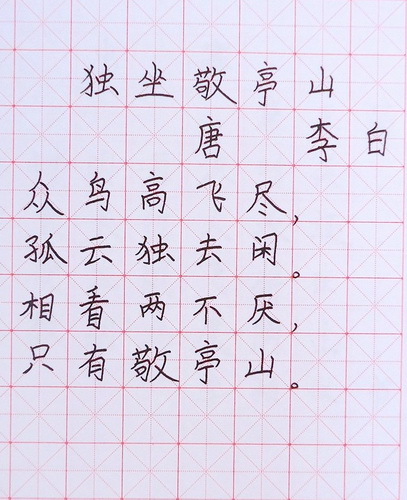 独坐敬亭山
唐 李白
众鸟高飞尽，
孤云独去闲。
相看两不厌，
只有敬亭山。